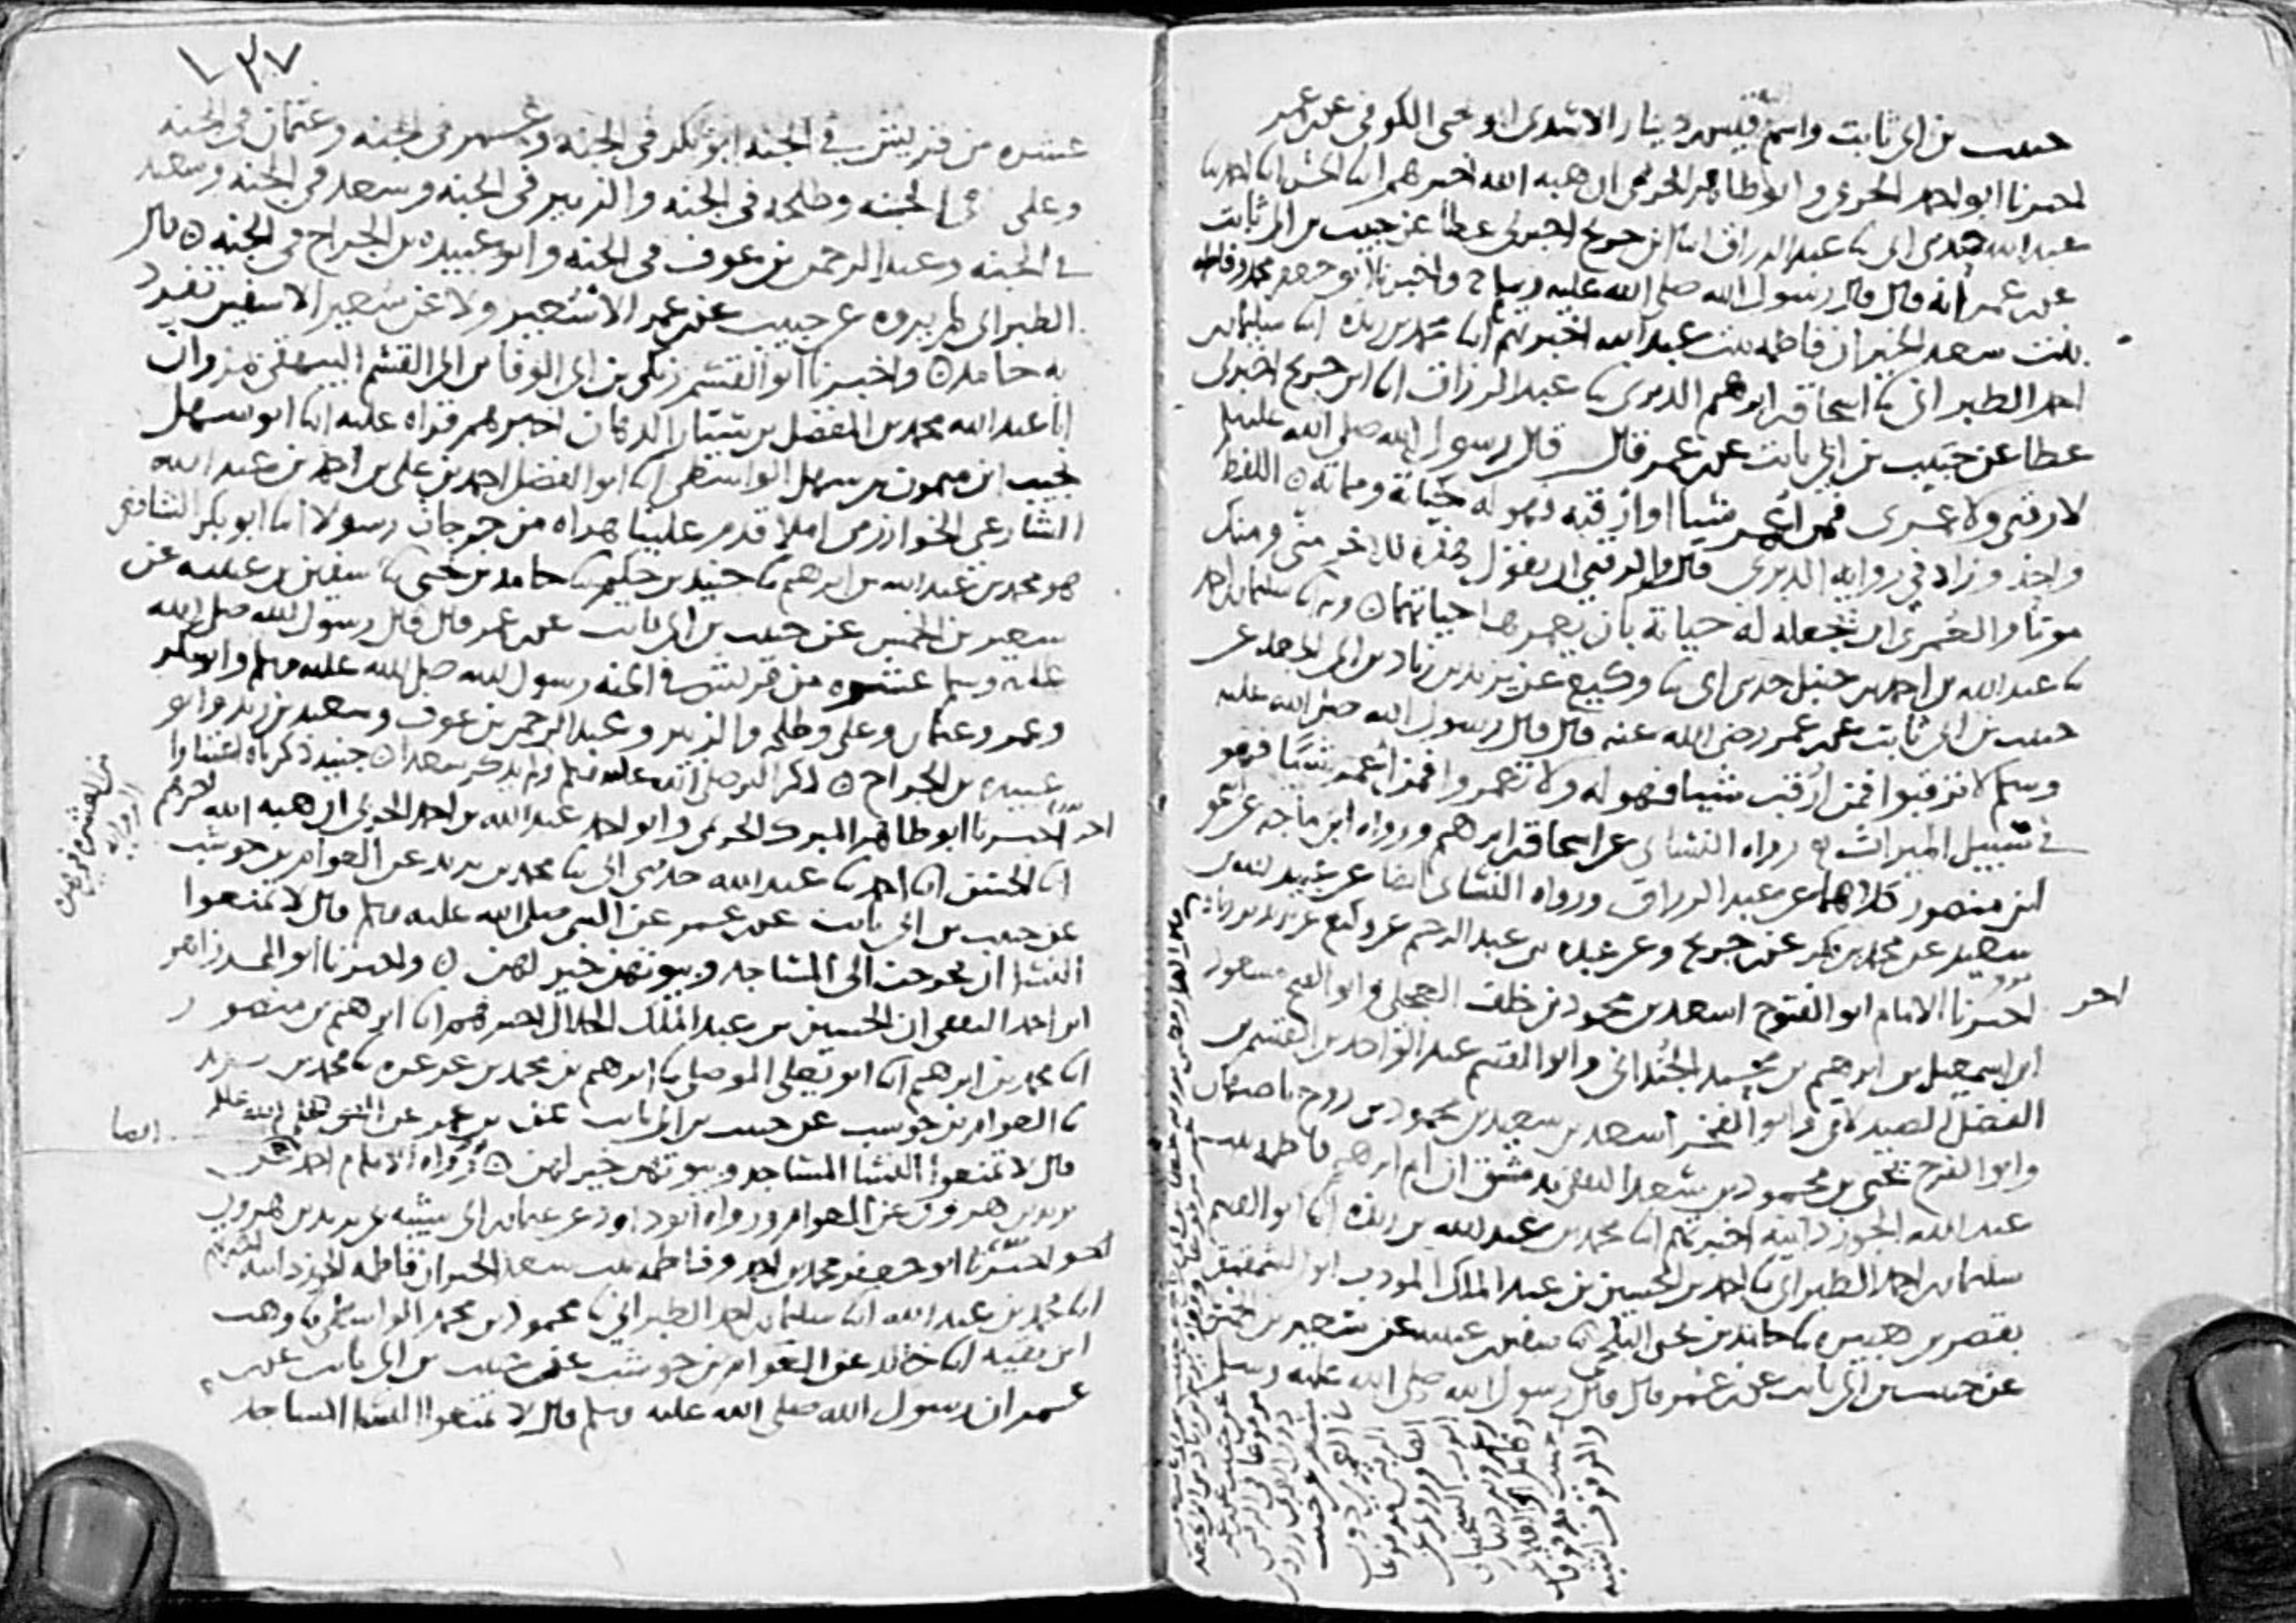 حبيب بن ابي ثابت واسمه قيس بن دينار الاسدي ابو يحيى الكوفي عن ابن عمر
اخبرنا ابو احمد الحربي وابو طاهر الحريمي ان هبة الله اخبرهم ابنا الحسن ابنا احمد ثنا
عبد الله حدثني ابي ثنا عبد الرزاق ابنا ابن جريج اخبرني عطا عن حبيب بن ابي ثابت
عن ابن عمر انه قال قال رسول الله صلى الله عليه وسلم ح واخبرنا ابو جعفر محمد وفاطمة
بنت سعد الخير ان فاطمة بنت عبد الله اخبرتهم ابنا محمد بن ريذة ابنا سليمان بن
احمد الطبراني ثنا اسحاق بن ابرهيم الدبري ثنا عبد الرزاق ابنا ابن جريج اخبرني
عطا عن حبيب بن ابي ثابت عن ابن عمر قال قال رسول الله صلى الله عليه وسلم
لا رقبى ولا عمرى فمن أعمر شيا او ارقبه فهو له حياته ومماته ⊙ اللفظ
واحد وزاد في رواية الدبري قال والرقبى ان يقول هذه للاخر مني ومنك
موتا والعمرى ان يجعله له حياته بان يعمرها حياتهما ⊙ وبه ابنا سليمان بن احمد
ثنا عبد الله بن احمد بن حنبل حدثني ابي ثنا وكيع عن يزيد بن زياد بن ابي الجعد عن
حبيب بن ابي ثابت عن ابن عمر رضي الله عنه قال قال رسول الله صلى الله عليه
وسلم لا ترقبوا فمن أرقب شيا فهو له ولا تعمروا فمن أعمر شيئا فهو
في سبيل الميراث ⊙ رواه النسائي عن اسحاق بن ابرهيم ورواه ابن ماجه عن
ابن منصور كلاهما عن عبد الرزاق ورواه النسائي ايضا عن عبيد الله بن
سعيد عن محمد بن بكر عن ابن جريج وعن عبدة بن عبد الرحيم عن وكيع عن يزيد بن زياد
اخر اخبرنا الامام ابو الفتوح اسعد بن محمود بن خلف العجلي وابو الفتح مسعود
ابن اسمعيل بن ابرهيم بن محمد الجنداني وابو القسم عبد الواحد بن القسم بن
الفضل الصيدلاني وابو الفخر اسعد بن سعيد بن محمود بن روح باصبهان
وابو الفرح يحيى بن محمود بن سعد الثقفي بدمشق ان ام ابرهيم فاطمة بنت
عبد الله الجوزدانية اخبرتهم ابنا محمد بن عبد الله بن ريذة ابنا ابو القسم
سليمان بن احمد الطبراني ثنا احمد بن الحسين بن عبد الملك المودب ابو الشمقمق
بقصر بن هبيرة ثنا حامد بن يحيى البلخي ثنا سفين بن عيينه عن سعير بن الخمس
عن حبيب بن ابي ثابت عن ابن عمر قال قال رسول الله صلى الله عليه وسلم
١٣٧
عشره من قريش في الجنه ابو بكر في الجنه وعمر في الجنه وعثمان في الجنه
وعلي في الجنه وطلحه في الجنه والزبير في الجنه وسعد في الجنه وسعيد
في الجنه وعبد الرحمن بن عوف في الجنه وابو عبيده بن الجراح في الجنه ⊙ قال
الطبراني لم يروه عن حبيب عن ابن عمر الا سعير ولا عن سعير الا سفين تفرد
به حامد ⊙ واخبرنا ابو القسم زنكي بن ابي الوفا بن ابي القسم البيهقي بمروان
ابا عبد الله محمد بن المفضل بن سيار الدهان اخبرهم قراة عليه ابنا ابو سهل
نجيب ابن ميمون بن سهل الواسطي ابنا ابو الفضل احمد بن علي بن احمد بن عبد الله
الشارعي الخوارزمي املا قدم علينا هراه من جرجان رسولا ابنا ابو بكر الشافعي
هو محمد بن عبد الله بن ابرهيم ثنا جنيد بن حكيم ثنا حامد بن يحيى ثنا سفين بن عيينه عن
سعير بن الخمس عن حبيب بن ابي ثابت عن ابن عمر قال قال رسول الله صلى الله
عليه وسلم عشره من قريش في الجنه رسول الله صلى الله عليه وسلم وابو بكر
وعمر وعثمان وعلي وطلحه والزبير وعبد الرحمن بن عوف وسعيد بن زيد وابو
عبيده بن الجراح ⊙ ذكر النبي صلى الله عليه وسلم ولم يذكر سعدا ⊙ جنيد ذكرناه
اخر اخبرنا ابو طاهر المبرك الحريمي وابو احمد عبد الله بن احمد الحربي ان هبة الله اخبرهم
ابنا الحسن ابنا احمد ثنا عبد الله حدثني ابي ثنا محمد بن يزيد عن العوام بن حوشب
عن حبيب بن ابي ثابت عن ابن عمر عن النبي صلى الله عليه وسلم قال لا تمنعوا
النسا ان يخرجن الى المساجد وبيوتهن خير لهن ⊙ واخبرنا ابو المجد زاهر
ابن احمد الثقفي ان الحسين بن عبد الملك الخلال اخبرهم ابنا ابرهيم بن منصور
ابنا محمد بن ابرهيم ابنا ابو يعلى الموصلي ثنا ابرهيم بن محمد بن عرعره ثنا محمد بن يزيد
ثنا العوام بن حوشب عن حبيب بن ابي ثابت عن ابن عمر عن النبي صلى الله عليه
قال لا تمنعوا النسا المساجد وبيوتهن خير لهن ⊙ رواه الامام احمد عن
يزيد بن هرون عن العوام ورواه ابو داود عن عثمان بن ابي شيبه عن يزيد بن هرون
اخبرنا ابو جعفر محمد بن احمد وفاطمه بنت سعد الخير ان فاطمه الجوزدانيه اخبرتهم
ابنا محمد بن عبد الله ابنا سليمان بن احمد الطبراني ثنا محمود بن محمد الواسطي ثنا وهب
ابن بقيه ابنا خالد عن العوام بن حوشب عن حبيب بن ابي ثابت عن ابن
عمر ان رسول الله صلى الله عليه وسلم قال لا تمنعوا النسا المساجد